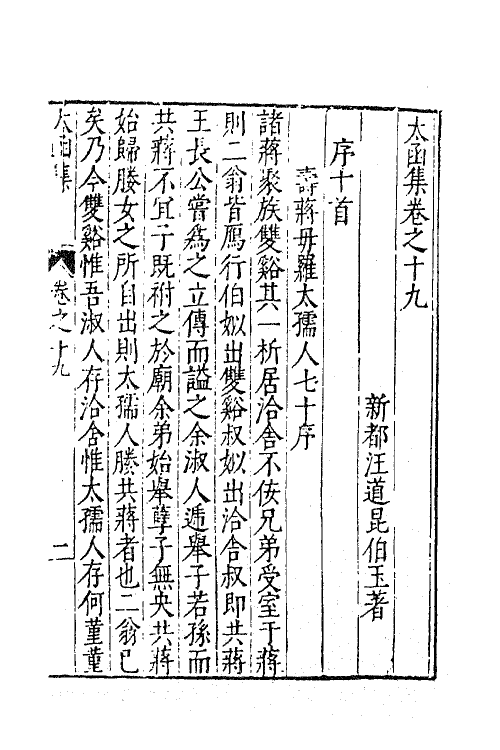 太函集卷之十九
新都汪道昆伯玉著
序十首
壽蔣母羅太孺人七十序
諸蔣聚族雙谿其一析居洽舍不佞兄弟受室于蔣
則二翁皆鴈行伯姒出雙谿叔姒出洽舍叔即共蔣
王長公嘗為之立傳而謚之余淑人遞舉子若孫而
共蔣不宜子既祔之於廟余弟始舉孽子無央共蔣
始歸媵女之所自出則太孺人媵共蔣者也二翁已
矣乃今雙谿惟吾淑人存洽舍惟太孺人存何菫菫
太函集 卷之十九 二